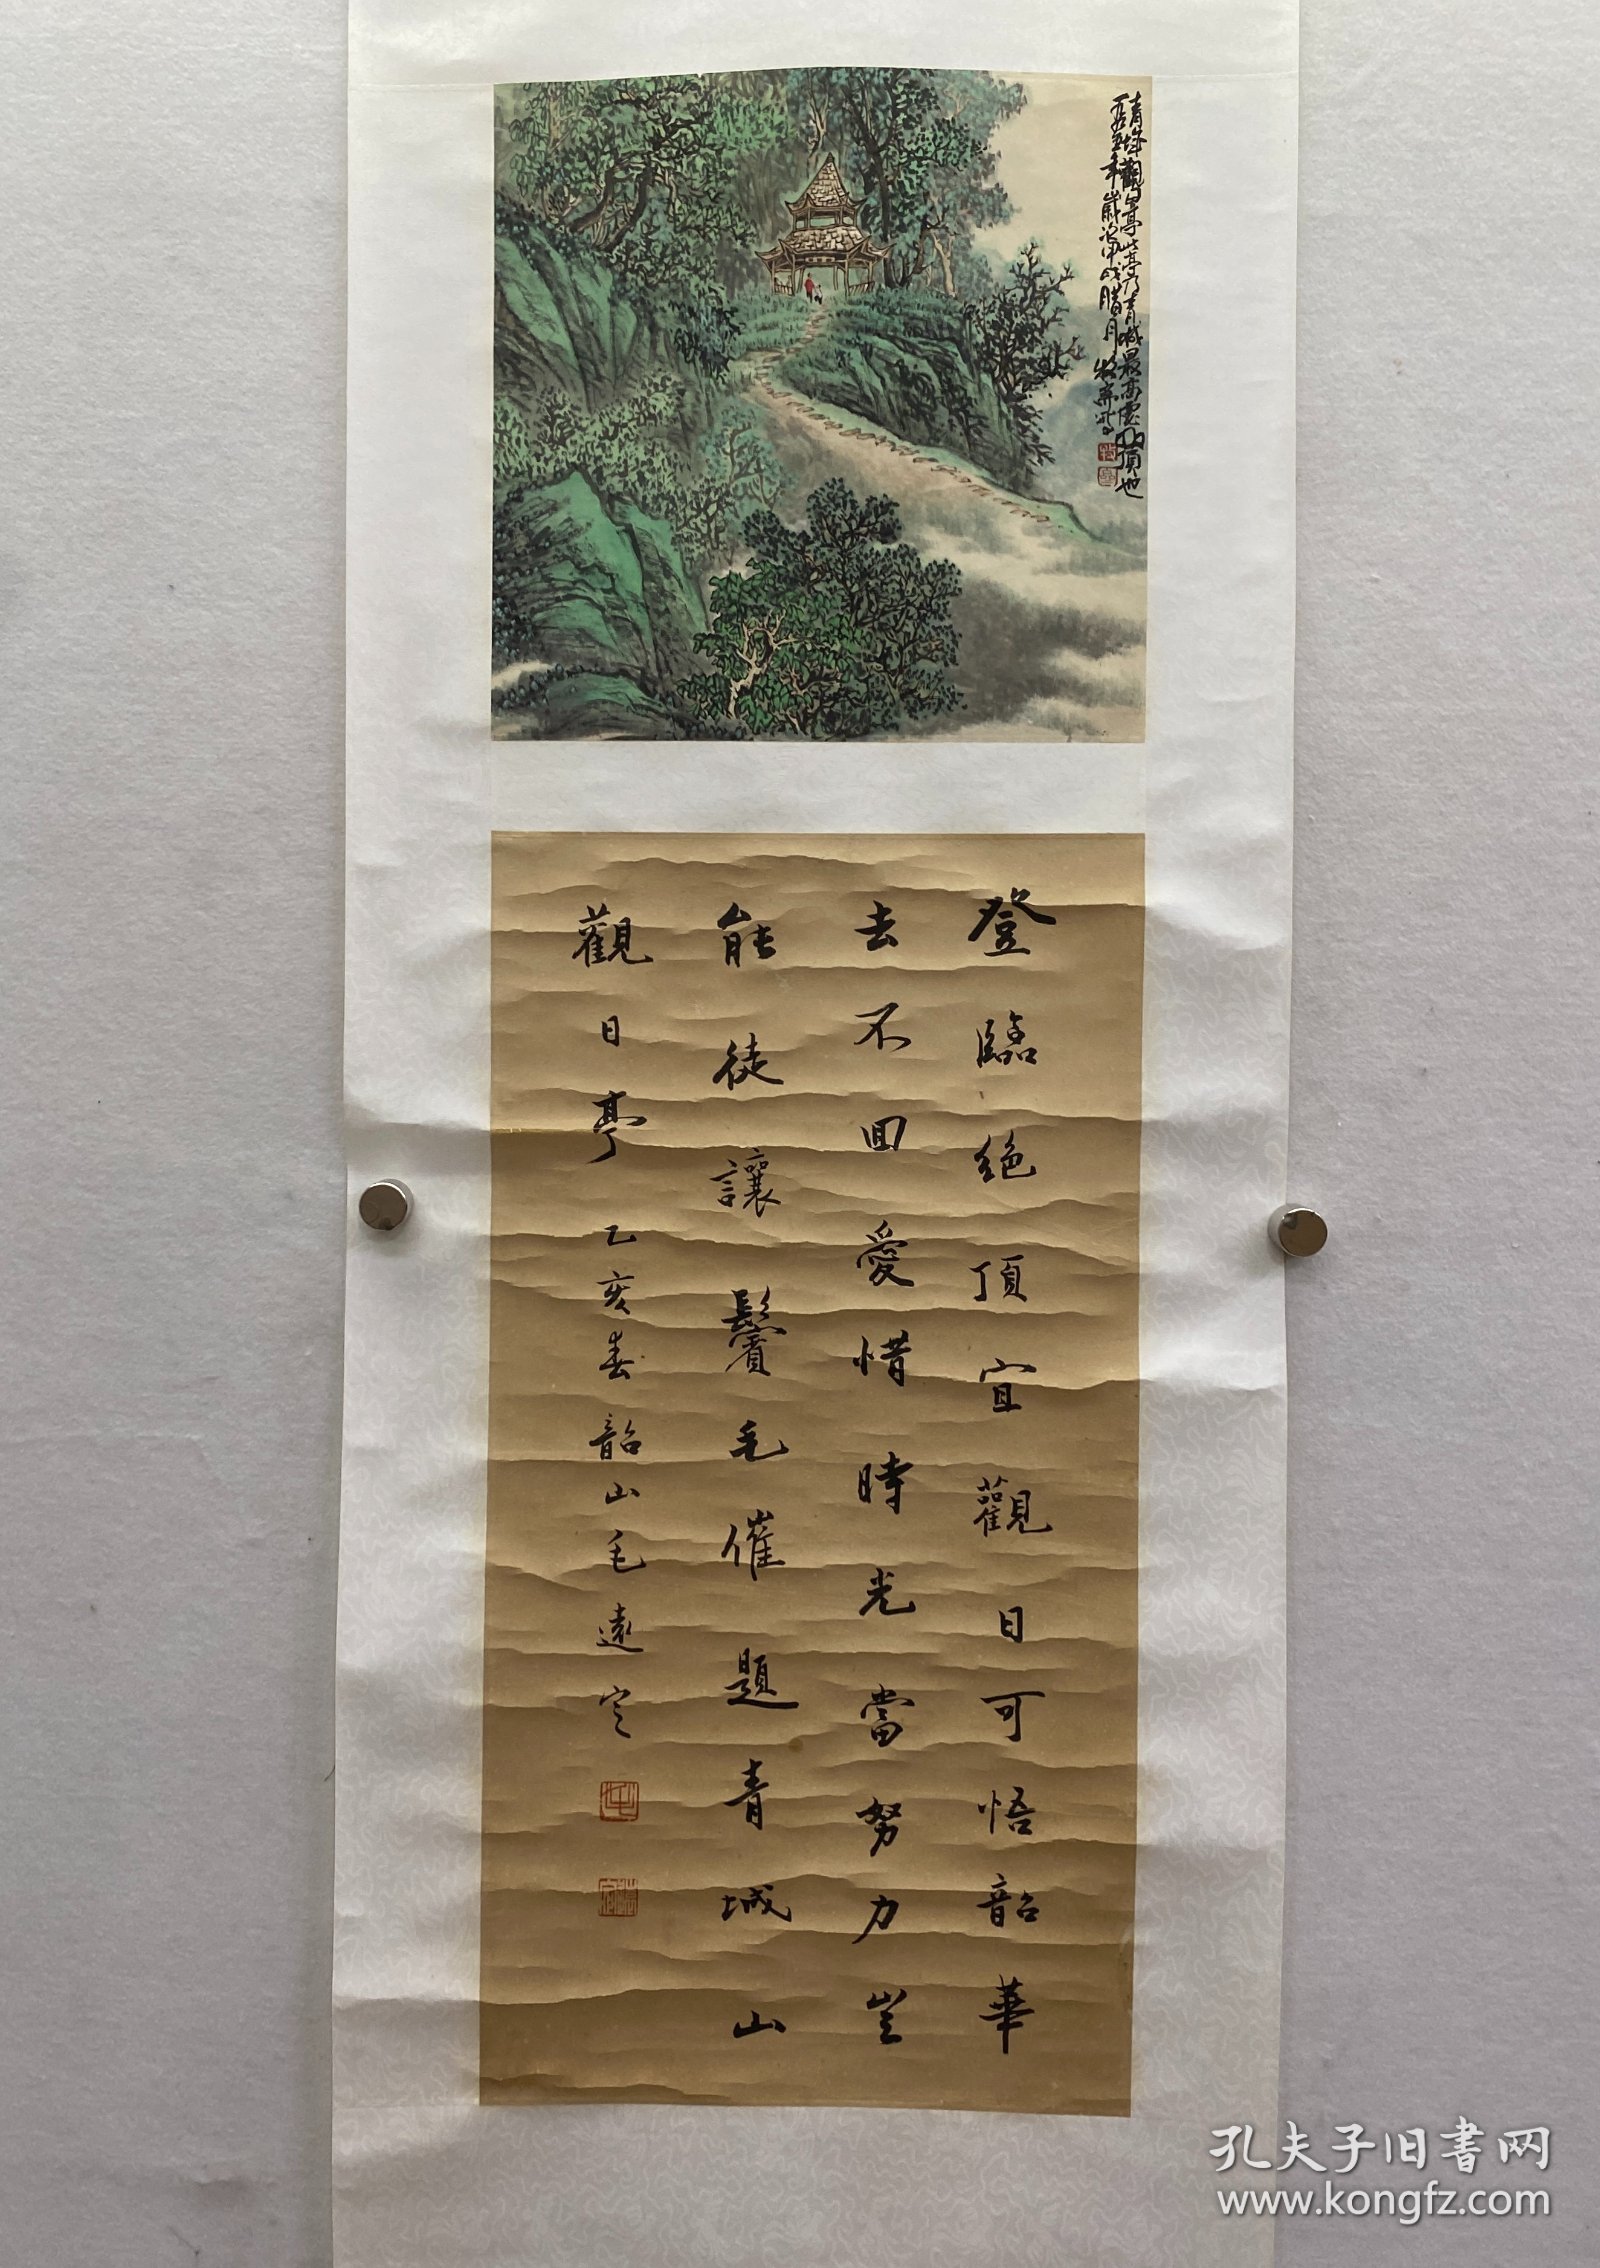 青城觀日亭此亭乃青城最高處
頂也
年歲次甲戌腊月
登臨絕頂宜觀日可悟韶華
去不回愛惜時光當努力豈
能徒讓鬢毛催題青城山
觀日亭乙亥春韶山毛遠定
孔夫子旧书网
www.kongfz.com